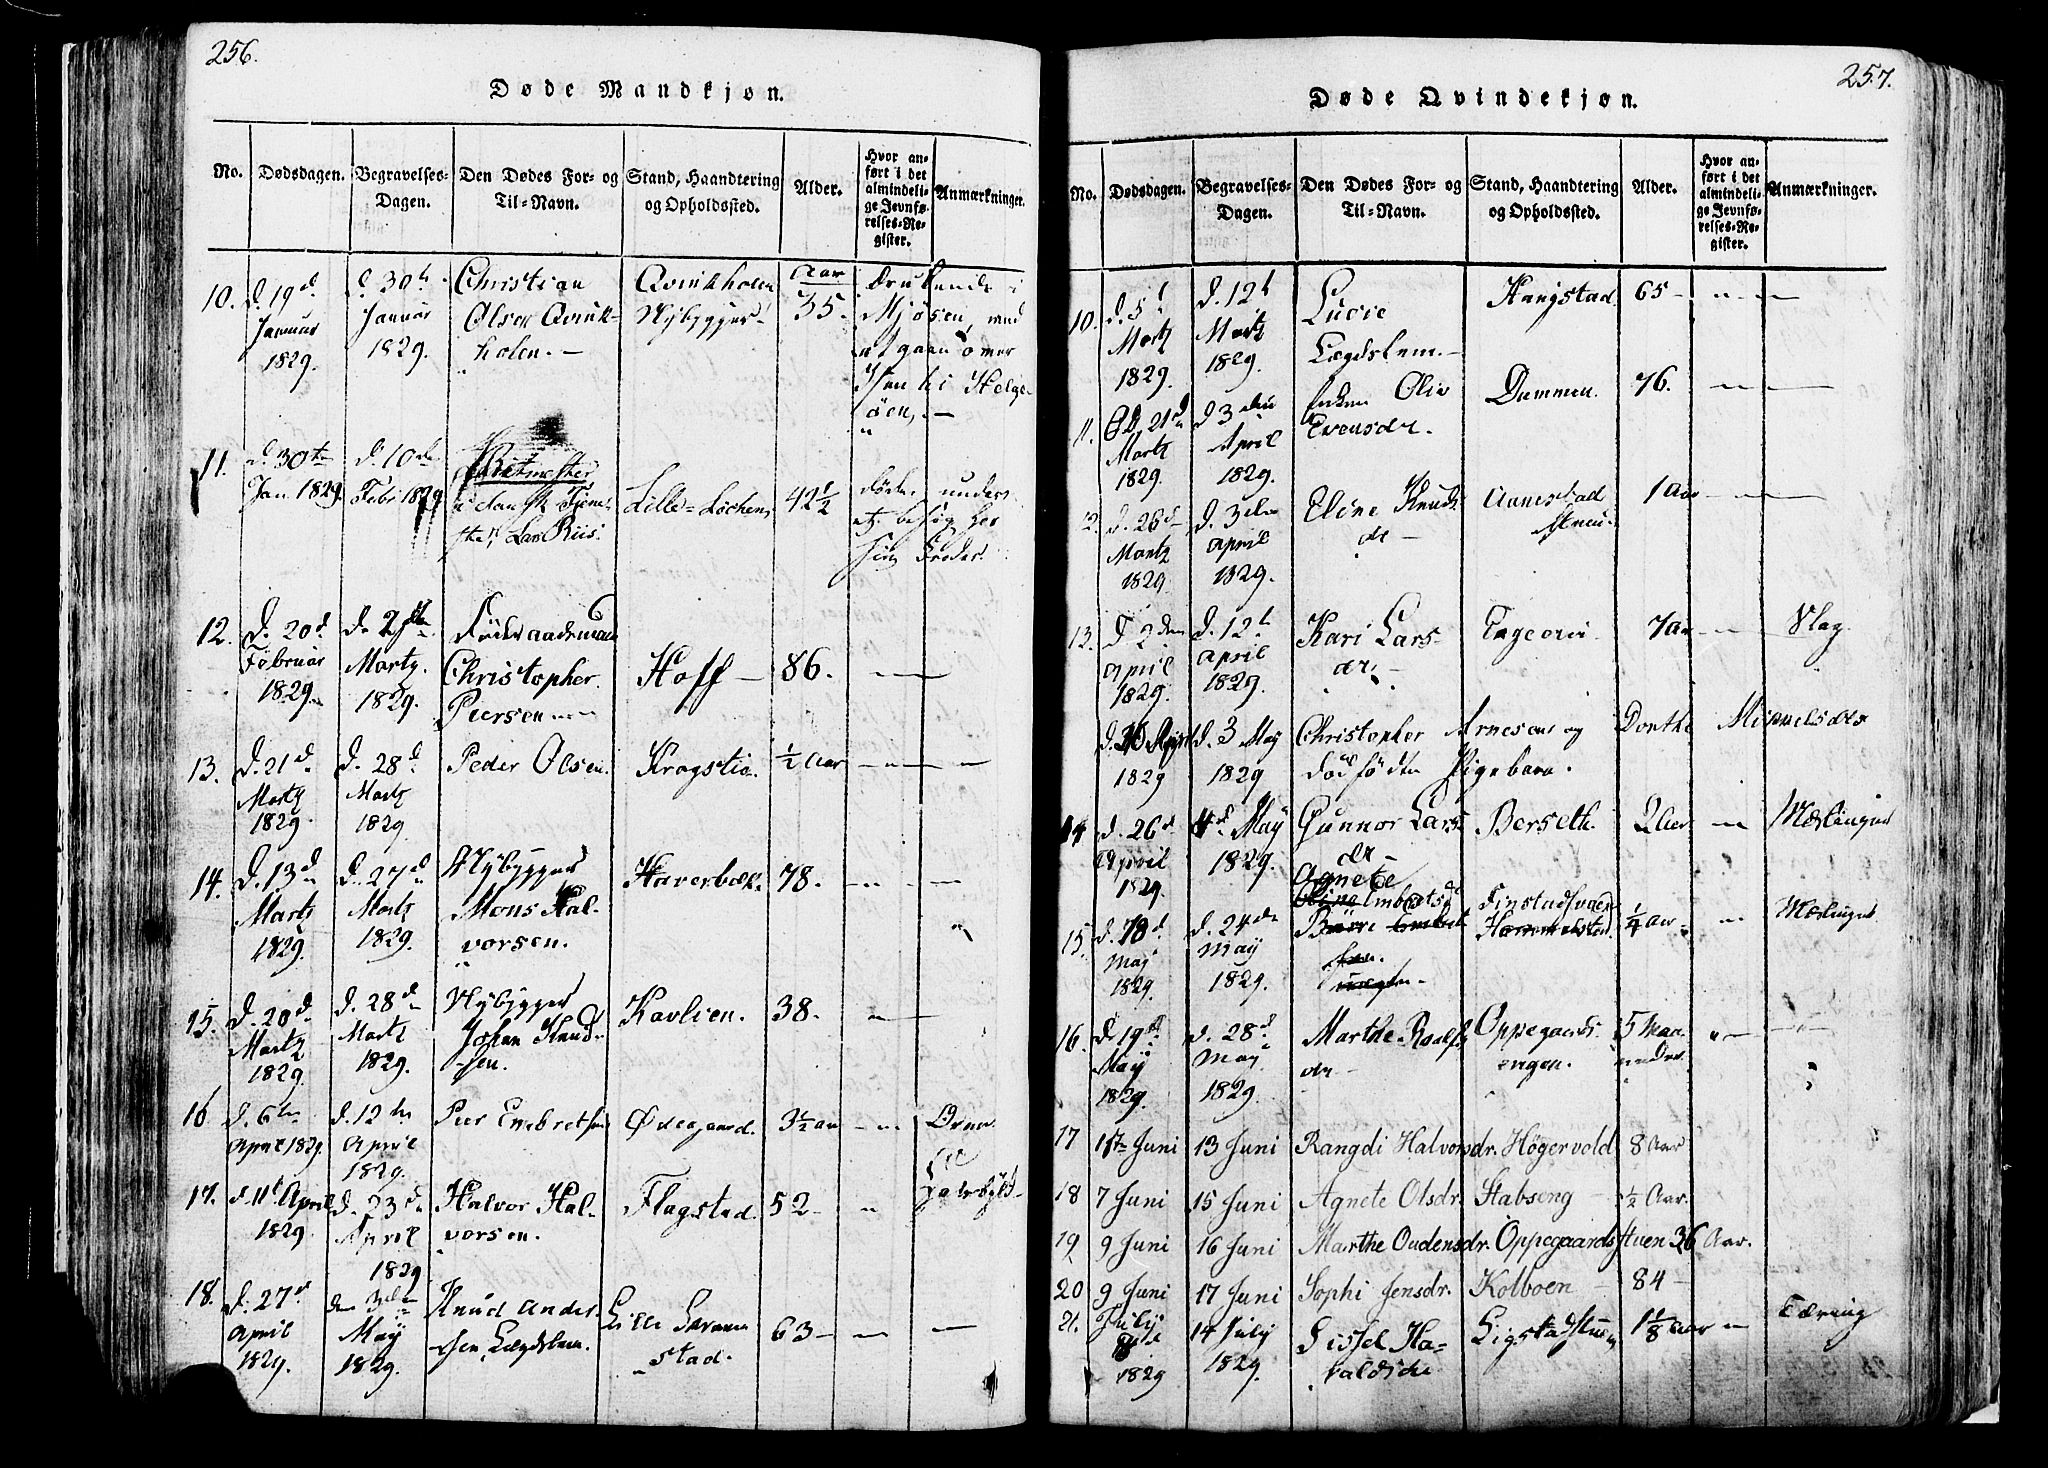 256.
Døde Mandkjøn.
No.
Dødsdagen.
Begravelses-
Dagen.
Den Dødes For- og
Til-Navn.
Stand, Haandtering
og Opholdssted.
Alder.
Hvor an-
ført i det
almindeli-
ge Jevnfø-
relses-Re-
gister.
Anmærkninger.
10. d. 19d Januar 1829. d. 30te Januar 1829. Christian
Olsen Qvink-
holen. Qvinkholen
Nybygger Aar
35. Druknede i
Mjøsen, ved
at gaae over
Isen til Helge-
öen.
11. d. 30te Jan 1829. d. 10de Febr 1829 Ritmester
i dansk Tjene-
ste, Lars Riis. Lille-Løchen, 42½ døde under
et besøg hos
sin Broder.
12. D. 20d Februar 1829. Martz. 1829. Föderaadsmand
Christopher
Peersen Hoff 86.
13. D. 21d Martz 1829. D. 28d Martz 1829. Peder Olsen. Krogstie. ½ Aar
14. D. 13d Martz 1829. D. 27d Martz 1829. Nybygger
Mons Hal-
vorsen. Haverbæk. 78.
15. D. 20d Martz 1829. D. 28d Martz 1829. Nybygger
Johan Knud-
sen. Kavlien. 38.
16 D. 6te April 1829. D. 12te April 1829. Peer Engebretsen Ødegaard. 3½ aar
17. d. 11te April 1829. D. 23d April 1829 Halvor Hal-
vorsen. Flagstad. 52
18. d. 27d April 1829. den 3die May 1829. Knud Ander-
sen Lægdslem. Lille
stad. 63

257.
Døde Qvindekjøn.
No.
Dødsdagen.
Begravelses-
Dagen.
Den Dødes For- og
Til-Navn.
Stand, Haandtering
og Opholdssted.
Alder.
Hvor an-
ført i det
almindeli-
ge Jevnfø-
relses-Re-
gister.
Anmærkninger.
10. d. 5t Martz 1829. d. 12t Martz 1829. Lucie
Lægdslem. 65
11. D. 21d Martz 1829 d. 3die April 1829. Enken Oliv
Evensdr. Dammen. 76.
12. d. 26d Martz 1829 d. 3die April 1829. Eline Knuds-
dr Aanestad 1 Aar
13. D 2den April 1829. d. 12t April 1829. Kari Lars-
dr. 7 Aar Slag
d. 30 April 1829 d. 3 May 1829 Christopher Arnesens og Dorthe
dödfödte Pigebarn.
14 d. 26d April 1829. 4d May 1829. Gunnor Lars-
dr Berseth. 2 Aar Mæslinger
15. d. 18d May 1829. d. 24de May 1829. Agnete
Embretsdr ¼ Aar Mæslinger
16. D. 19d May 1829. d. 28d May 1829. Marthe
dr Oppegaards-
engen. 5 Maa-
neder
17 1ste Juni 13 Juni Rangdi Halvorsdr. Högervold 8 Aar
18 7 Juni 15 Juni Agnete Olsdr. Stabseng ½ Aar.
19 9 Juni 16 Juni Marthe Oudensdr. Oppegaardsstuen 36 Aar.
20 9 Juni 17 Juni Sophi Jensdr. Kolboen 84
21. July 8de 1829 14 July 1829. Sissel Ha-
valdsdr Ligstadstuen 1⅛ Aar Tæring